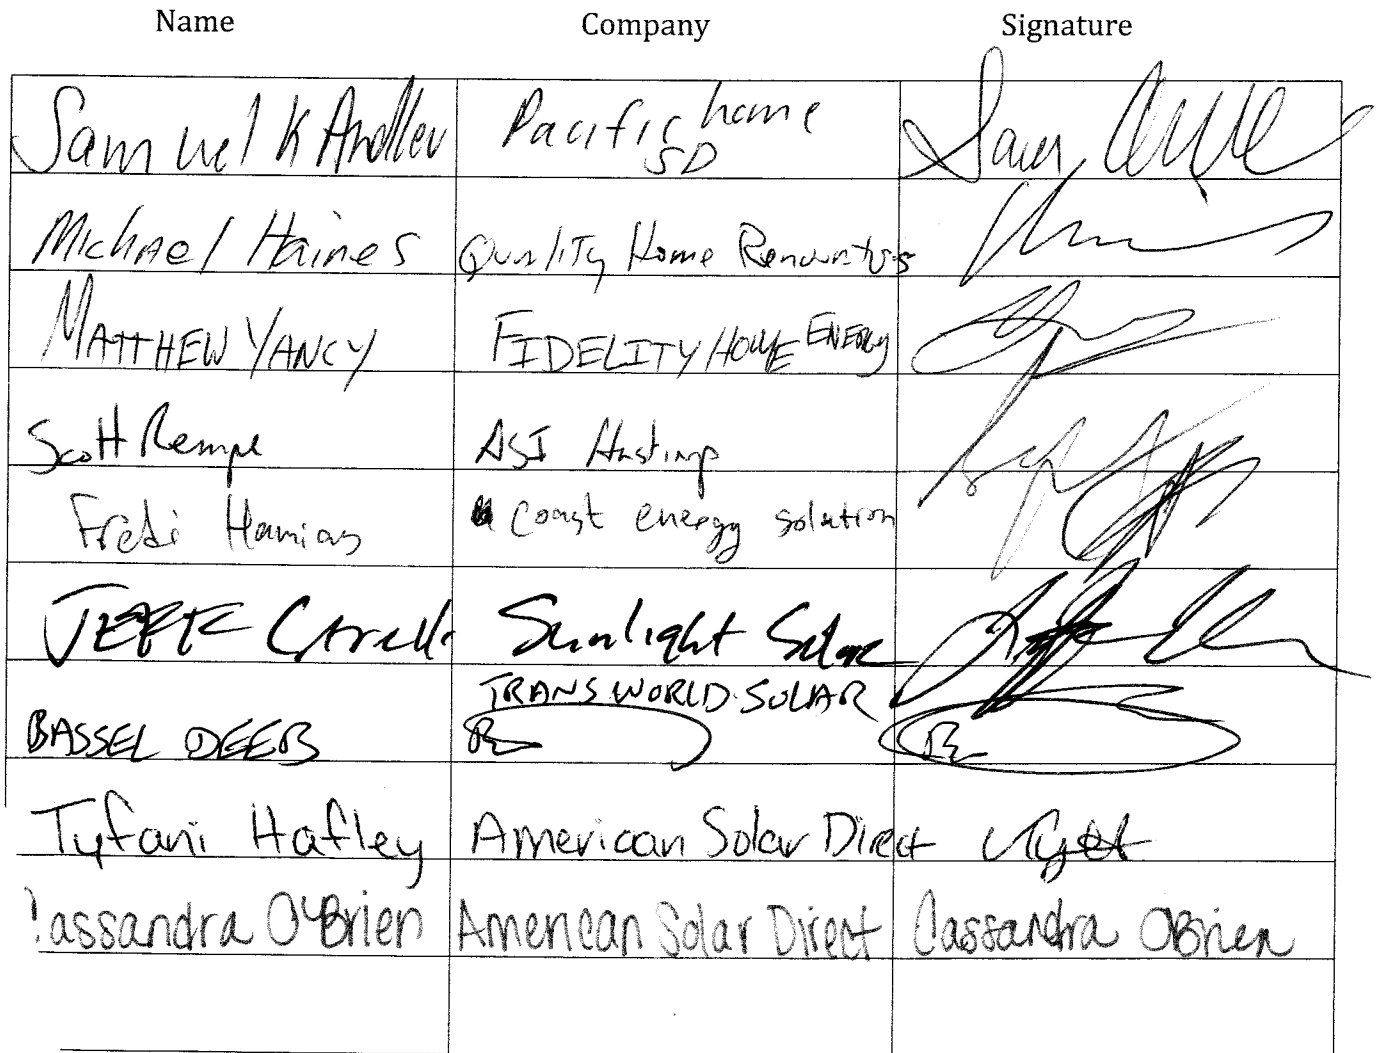 Name Company Signature
Samuel K Pacific home
SD
Michael Haines Quality Home Renovators
MATTHEW YANCY FIDELITY HOME ENERGY
Scott Rempe ASI Hastings
Fredi Hamias Coast energy solution
JEFF Sunlight Solar
TRANS WORLD SOLAR
BASSEL DEEB
Tyfani Hafley American Solar Direct
Cassandra O'Brien American Solar Direct Cassandra OBrien